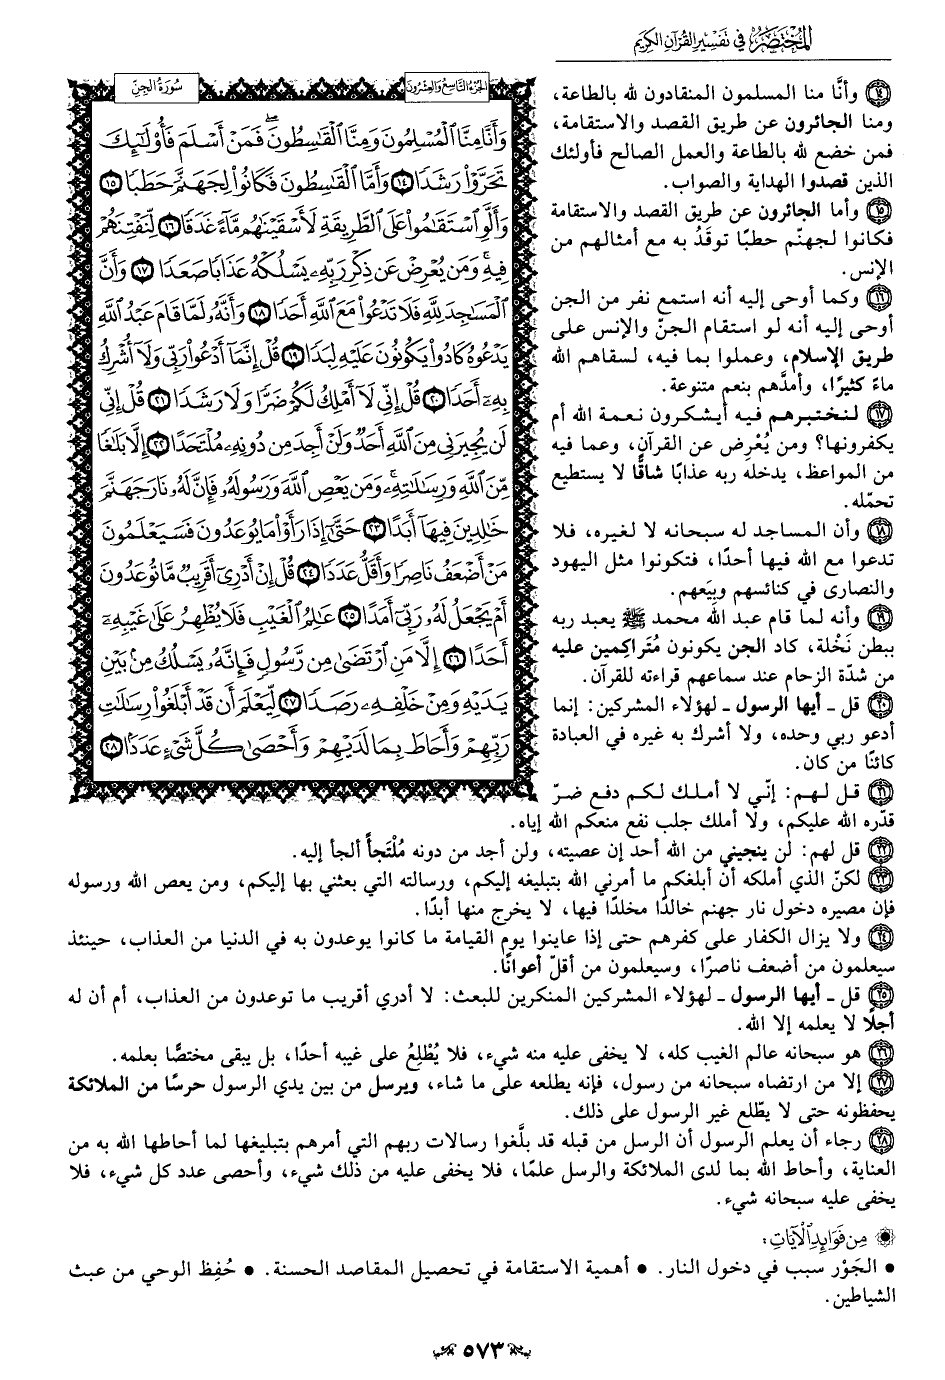 المختصر في تفسير القرآن الكريم
سورة الجن
الجزء التاسع والعشرون
وَأَنَّا مِنَّا ٱلْمُسْلِمُونَ وَمِنَّا ٱلْقَٰسِطُونَۖ فَمَنْ أَسْلَمَ فَأُو۟لَٰٓئِكَ
تَحَرَّوْا۟ رَشَدًا ١٤ وَأَمَّا ٱلْقَٰسِطُونَ فَكَانُوا۟ لِجَهَنَّمَ حَطَبًا ١٥
وَأَلَّوِ ٱسْتَقَٰمُوا۟ عَلَى ٱلطَّرِيقَةِ لَأَسْقَيْنَٰهُم مَّآءً غَدَقًا ١٦ لِّنَفْتِنَهُمْ
فِيهِۚ وَمَن يُعْرِضْ عَن ذِكْرِ رَبِّهِۦ يَسْلُكْهُ عَذَابًا صَعَدًا ١٧ وَأَنَّ
ٱلْمَسَٰجِدَ لِلَّهِ فَلَا تَدْعُوا۟ مَعَ ٱللَّهِ أَحَدًا ١٨ وَأَنَّهُۥ لَمَّا قَامَ عَبْدُ ٱللَّهِ
يَدْعُوهُ كَادُوا۟ يَكُونُونَ عَلَيْهِ لِبَدًا ١٩ قُلْ إِنَّمَآ أَدْعُوا۟ رَبِّى وَلَآ أُشْرِكُ
بِهِۦٓ أَحَدًا ٢٠ قُلْ إِنِّى لَآ أَمْلِكُ لَكُمْ ضَرًّا وَلَا رَشَدًا ٢١ قُلْ إِنِّى
لَن يُجِيرَنِى مِنَ ٱللَّهِ أَحَدٌ وَلَنْ أَجِدَ مِن دُونِهِۦ مُلْتَحَدًا ٢٢ إِلَّا بَلَٰغًا
مِّنَ ٱللَّهِ وَرِسَٰلَٰتِهِۦۚ وَمَن يَعْصِ ٱللَّهَ وَرَسُولَهُۥ فَإِنَّ لَهُۥ نَارَ جَهَنَّمَ
خَٰلِدِينَ فِيهَآ أَبَدًا ٢٣ حَتَّىٰٓ إِذَا رَأَوْا۟ مَا يُوعَدُونَ فَسَيَعْلَمُونَ
مَنْ أَضْعَفُ نَاصِرًا وَأَقَلُّ عَدَدًا ٢٤ قُلْ إِنْ أَدْرِىٓ أَقَرِيبٌ مَّا تُوعَدُونَ
أَمْ يَجْعَلُ لَهُۥ رَبِّىٓ أَمَدًا ٢٥ عَٰلِمُ ٱلْغَيْبِ فَلَا يُظْهِرُ عَلَىٰ غَيْبِهِۦٓ
أَحَدًا ٢٦ إِلَّا مَنِ ٱرْتَضَىٰ مِن رَّسُولٍ فَإِنَّهُۥ يَسْلُكُ مِنۢ بَيْنِ
يَدَيْهِ وَمِنْ خَلْفِهِۦ رَصَدًا ٢٧ لِّيَعْلَمَ أَن قَدْ أَبْلَغُوا۟ رِسَٰلَٰتِ
رَبِّهِمْ وَأَحَاطَ بِمَا لَدَيْهِمْ وَأَحْصَىٰ كُلَّ شَىْءٍ عَدَدًۢا ٢٨
١٤ وأنَّا منا المسلمون المنقادون لله بالطاعة،
ومنا الجائرون عن طريق القصد والاستقامة،
فمن خضع لله بالطاعة والعمل الصالح فأولئك
الذين قصدوا الهداية والصواب.
١٥ وأما الجائرون عن طريق القصد والاستقامة
فكانوا لجهنّم حطبًا توقَدُ به مع أمثالهم من
الإنس.
١٦ وكما أوحى إليه أنه استمع نفر من الجن
أوحى إليه أنه لو استقام الجنّ والإنس على
طريق الإسلام، وعملوا بما فيه، لسقاهم الله
ماءً كثيرًا، وأمدَّهم بنعم متنوعة.
١٧ لنختبرهم فيه أيشكرون نعمة الله أم
يكفرونها؟ ومن يُعْرِض عن القرآن، وعما فيه
من المواعظ، يدخله ربه عذابًا شاقًّا لا يستطيع
تحمّله.
١٨ وأن المساجد له سبحانه لا لغيره، فلا
تدعوا مع الله فيها أحدًا، فتكونوا مثل اليهود
والنصارى في كنائسهم وبِيَعهم.
١٩ وأنه لما قام عبد الله محمد ﷺ يعبد ربه
ببطن نَخْلة، كاد الجن يكونون مُتَراكِمين عليه
من شدّة الزحام عند سماعهم قراءته للقرآن.
٢٠ قل ـ أيها الرسول ـ لهؤلاء المشركين: إنما
أدعو ربي وحده، ولا أشرك به غيره في العبادة
كائنًا من كان.
٢١ قل لهم: إنّي لا أملك لكم دفع ضرّ
قدّره الله عليكم، ولا أملك جلب نفع منعكم الله إياه.
٢٢ قل لهم: لن ينجيني من الله أحد إن عصيته، ولن أجد من دونه مُلْتَجأً ألجأ إليه.
٢٣ لكنّ الذي أملكه أن أبلغكم ما أمرني الله بتبليغه إليكم، ورسالته التي بعثني بها إليكم، ومن يعص الله ورسوله
فإن مصيره دخول نار جهنم خالدًا مخلدًا فيها، لا يخرج منها أبدًا.
٢٤ ولا يزال الكفار على كفرهم حتى إذا عاينوا يوم القيامة ما كانوا يوعدون به في الدنيا من العذاب، حينئذ
سيعلمون من أضعف ناصرًا، وسيعلمون من أقلّ أعوانًا.
٢٥ قل ـ أيها الرسول ـ لهؤلاء المشركين المنكرين للبعث: لا أدري أقريب ما توعدون من العذاب، أم أن له
أجلًا لا يعلمه إلا الله.
٢٦ هو سبحانه عالم الغيب كله، لا يخفى عليه منه شيء، فلا يُطْلِعُ على غيبه أحدًا، بل يبقى مختصًّا بعلمه.
٢٧ إلا من ارتضاه سبحانه من رسول، فإنه يطلعه على ما شاء، ويرسل من بين يدي الرسول حرسًا من الملائكة
يحفظونه حتى لا يطّلع غير الرسول على ذلك.
٢٨ رجاء أن يعلم الرسول أن الرسل من قبله قد بلَّغوا رسالات ربهم التي أمرهم بتبليغها لما أحاطها الله به من
العناية، وأحاط الله بما لدى الملائكة والرسل علمًا، فلا يخفى عليه من ذلك شيء، وأحصى عدد كل شيء، فلا
يخفى عليه سبحانه شيء.
من فوائد الآيات:
• الجَوْر سبب في دخول النار. • أهمية الاستقامة في تحصيل المقاصد الحسنة. • حُفِظ الوحي من عبث
الشياطين.
٥٧٣